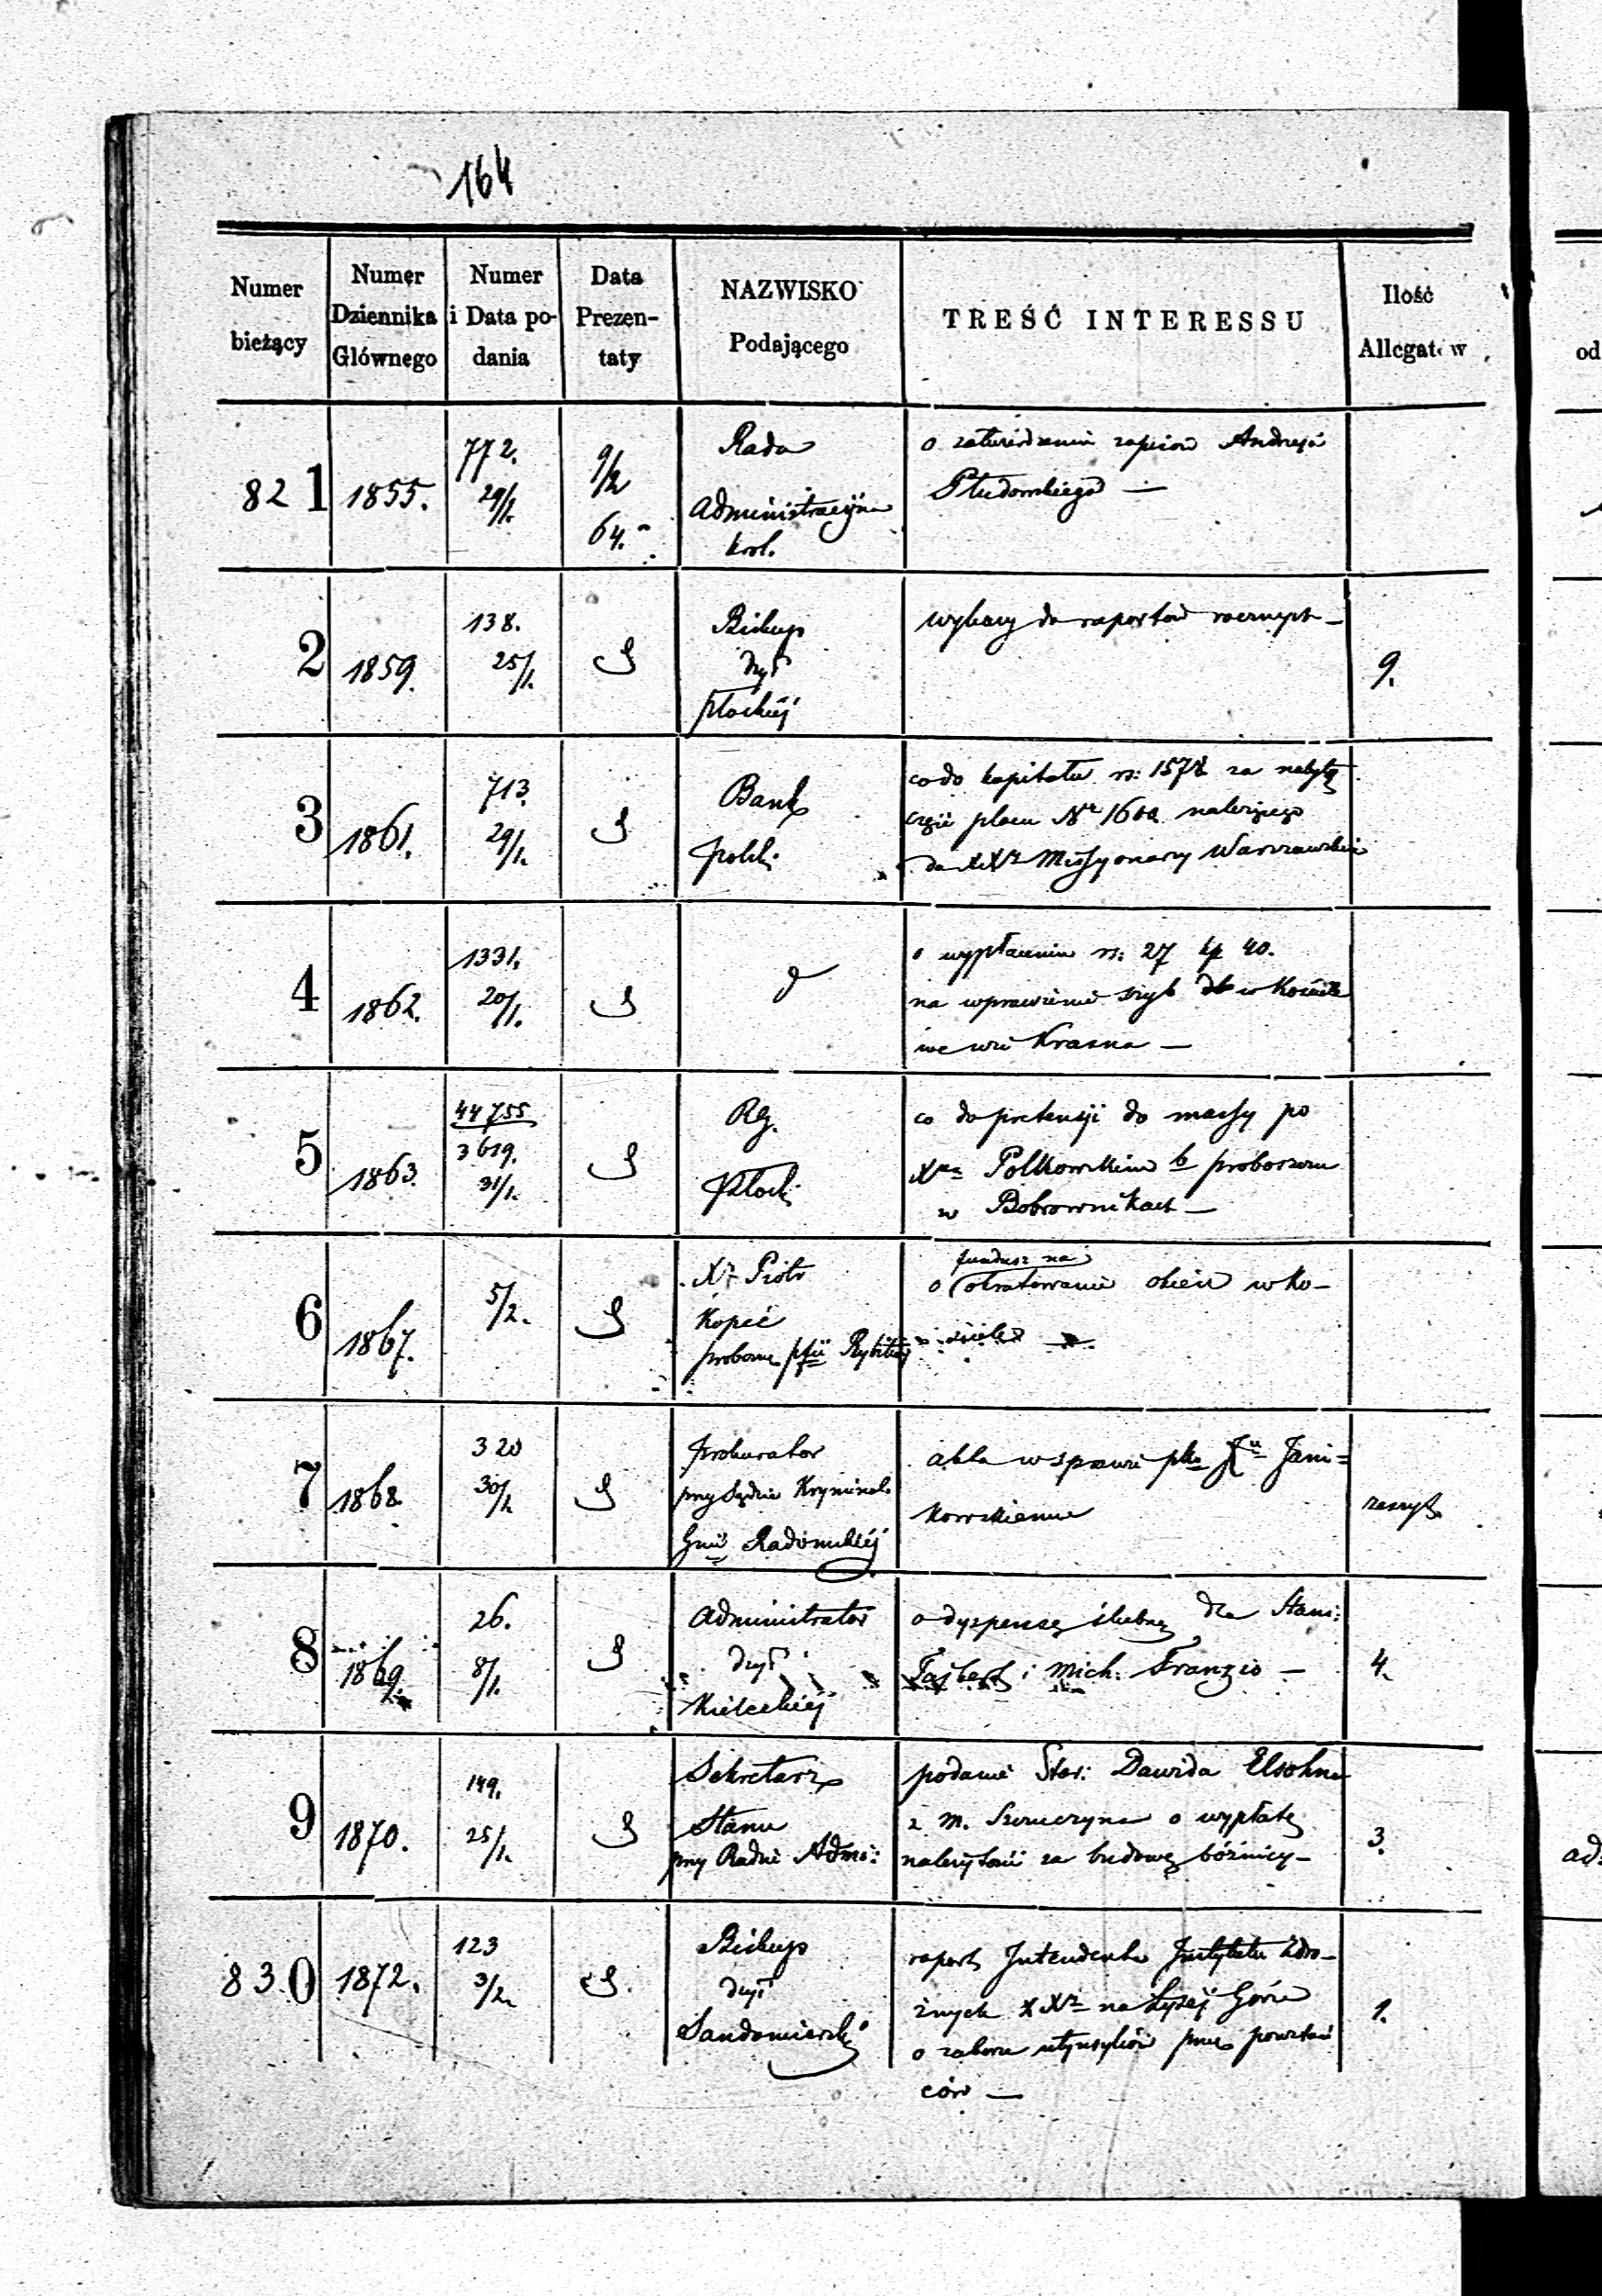 164
Numer bieżący
Numer Dziennika Głównego
Numer i Data podania
Data Prezentaty
NAZWISKO Podającego
TREŚĆ INTERESSU
Ilość Allegatów
821
1855.
772.
29/1.
9/2
64.
Rada
Administracyjna
Król.
o zatwierdzenie zapisów Andrzeja
2
1859.
138.
25/1.
Biskup
dyi
Płockiej
wykazy do raportów
9.
3
1861.
713.
29/1.
Bank
Polski
co do kapitału rs: 1578 za nabytą
część placu Nr należącego
do XXy Missyonarzy Warszawskich
4
1862.
1331.
20/1.
o wypłacenie rs: 27 kp 40.
na wprawienie szyb w Kościele
we wsi Krasne —
5
1863.
44755
3619.
31/1.
Rg.
Płocki
co do pretensji do massy po
Xdzu Polkowskim b proboszczu
w Bobrownikach —
6
1867.
5/2.
X. Piotr
Kopeć
probosz pfii
fundusz na
o okratowanie okien w Ko-
ściele
7
1868.
320
30/1.
Prokurator
przy Sądzie Kryminal.
Gnii Radomskiéj
akta w sprawie pko Xu Jani=
kowskiemu
zeszyt.
8
1869.
26.
8/1.
Administrator
dyi
Kieleckiéj
o dyspensę ślubną dla Stani:
i Mich. Franzio —
4.
9
1870.
149.
25/1.
Sekretarz
Stanu
przy Radzie Admi:
podanie Star: Dawida Elsohna
z m. Szczuczyna o wypłatę
należytości za budowę bóżnicy —
3.
830
1872.
123
3/2.
Biskup
dyi
Sandomierski
raport Intendenta Instytutu Zdro-
żnych XXy na Łysej Górze
o zaborze utensyliów przez powstań
ców —
1.